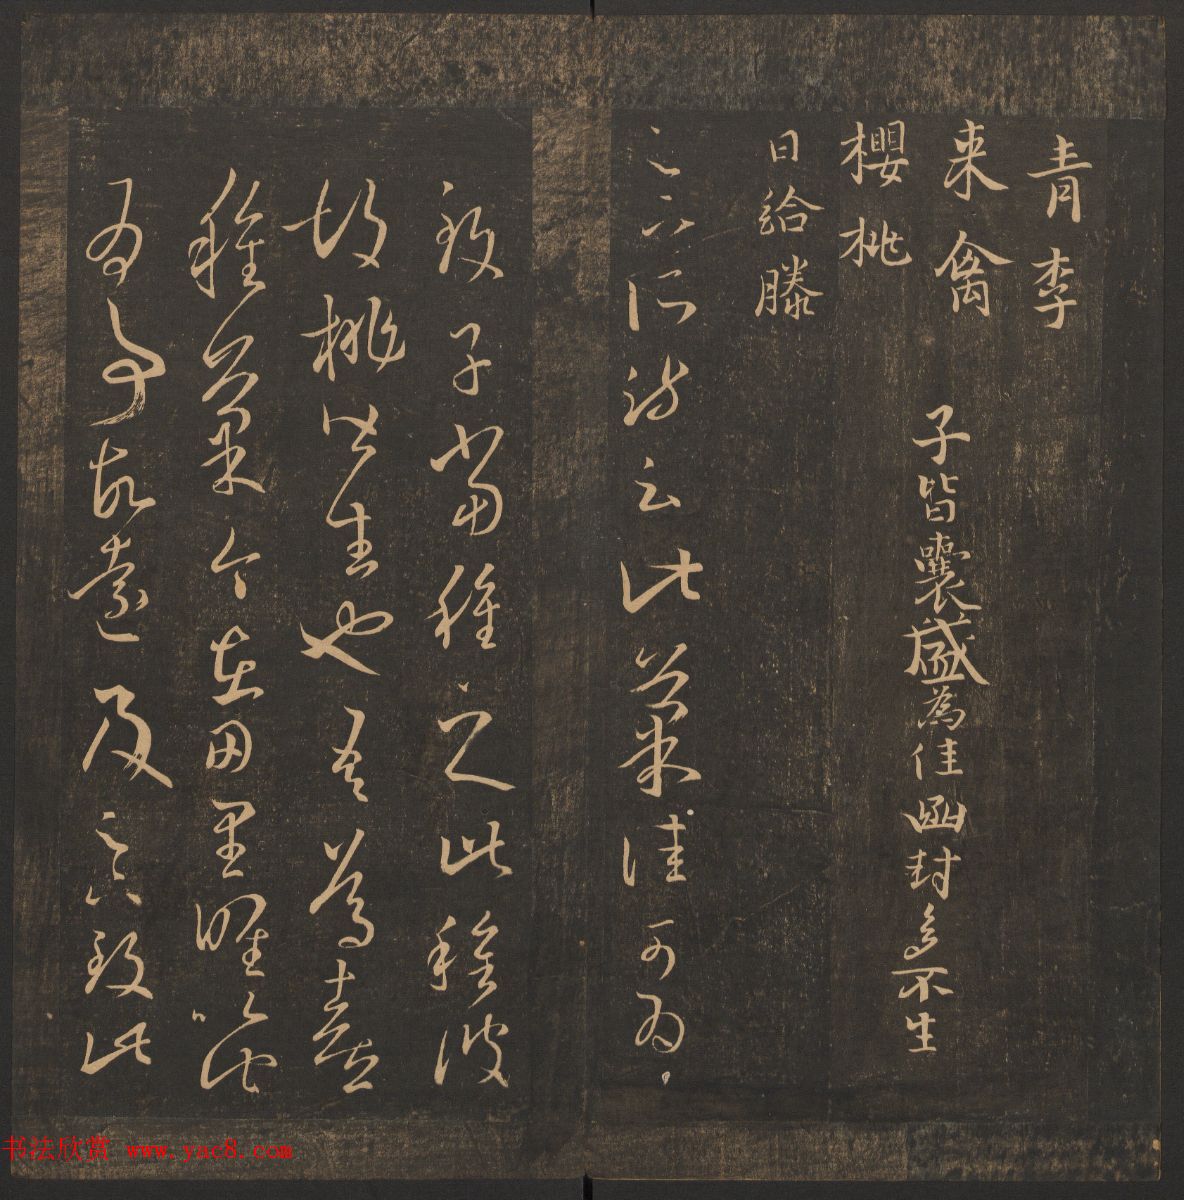 青李
来禽 子皆囊盛為佳函封多不生
櫻桃
日給滕
足下所疏云此果佳可為
致子當種之此種彼
胡桃皆生也吾篤喜
種果今在田里唯以此
為事故遠及足下致此
书法欣赏 www.yac8.com